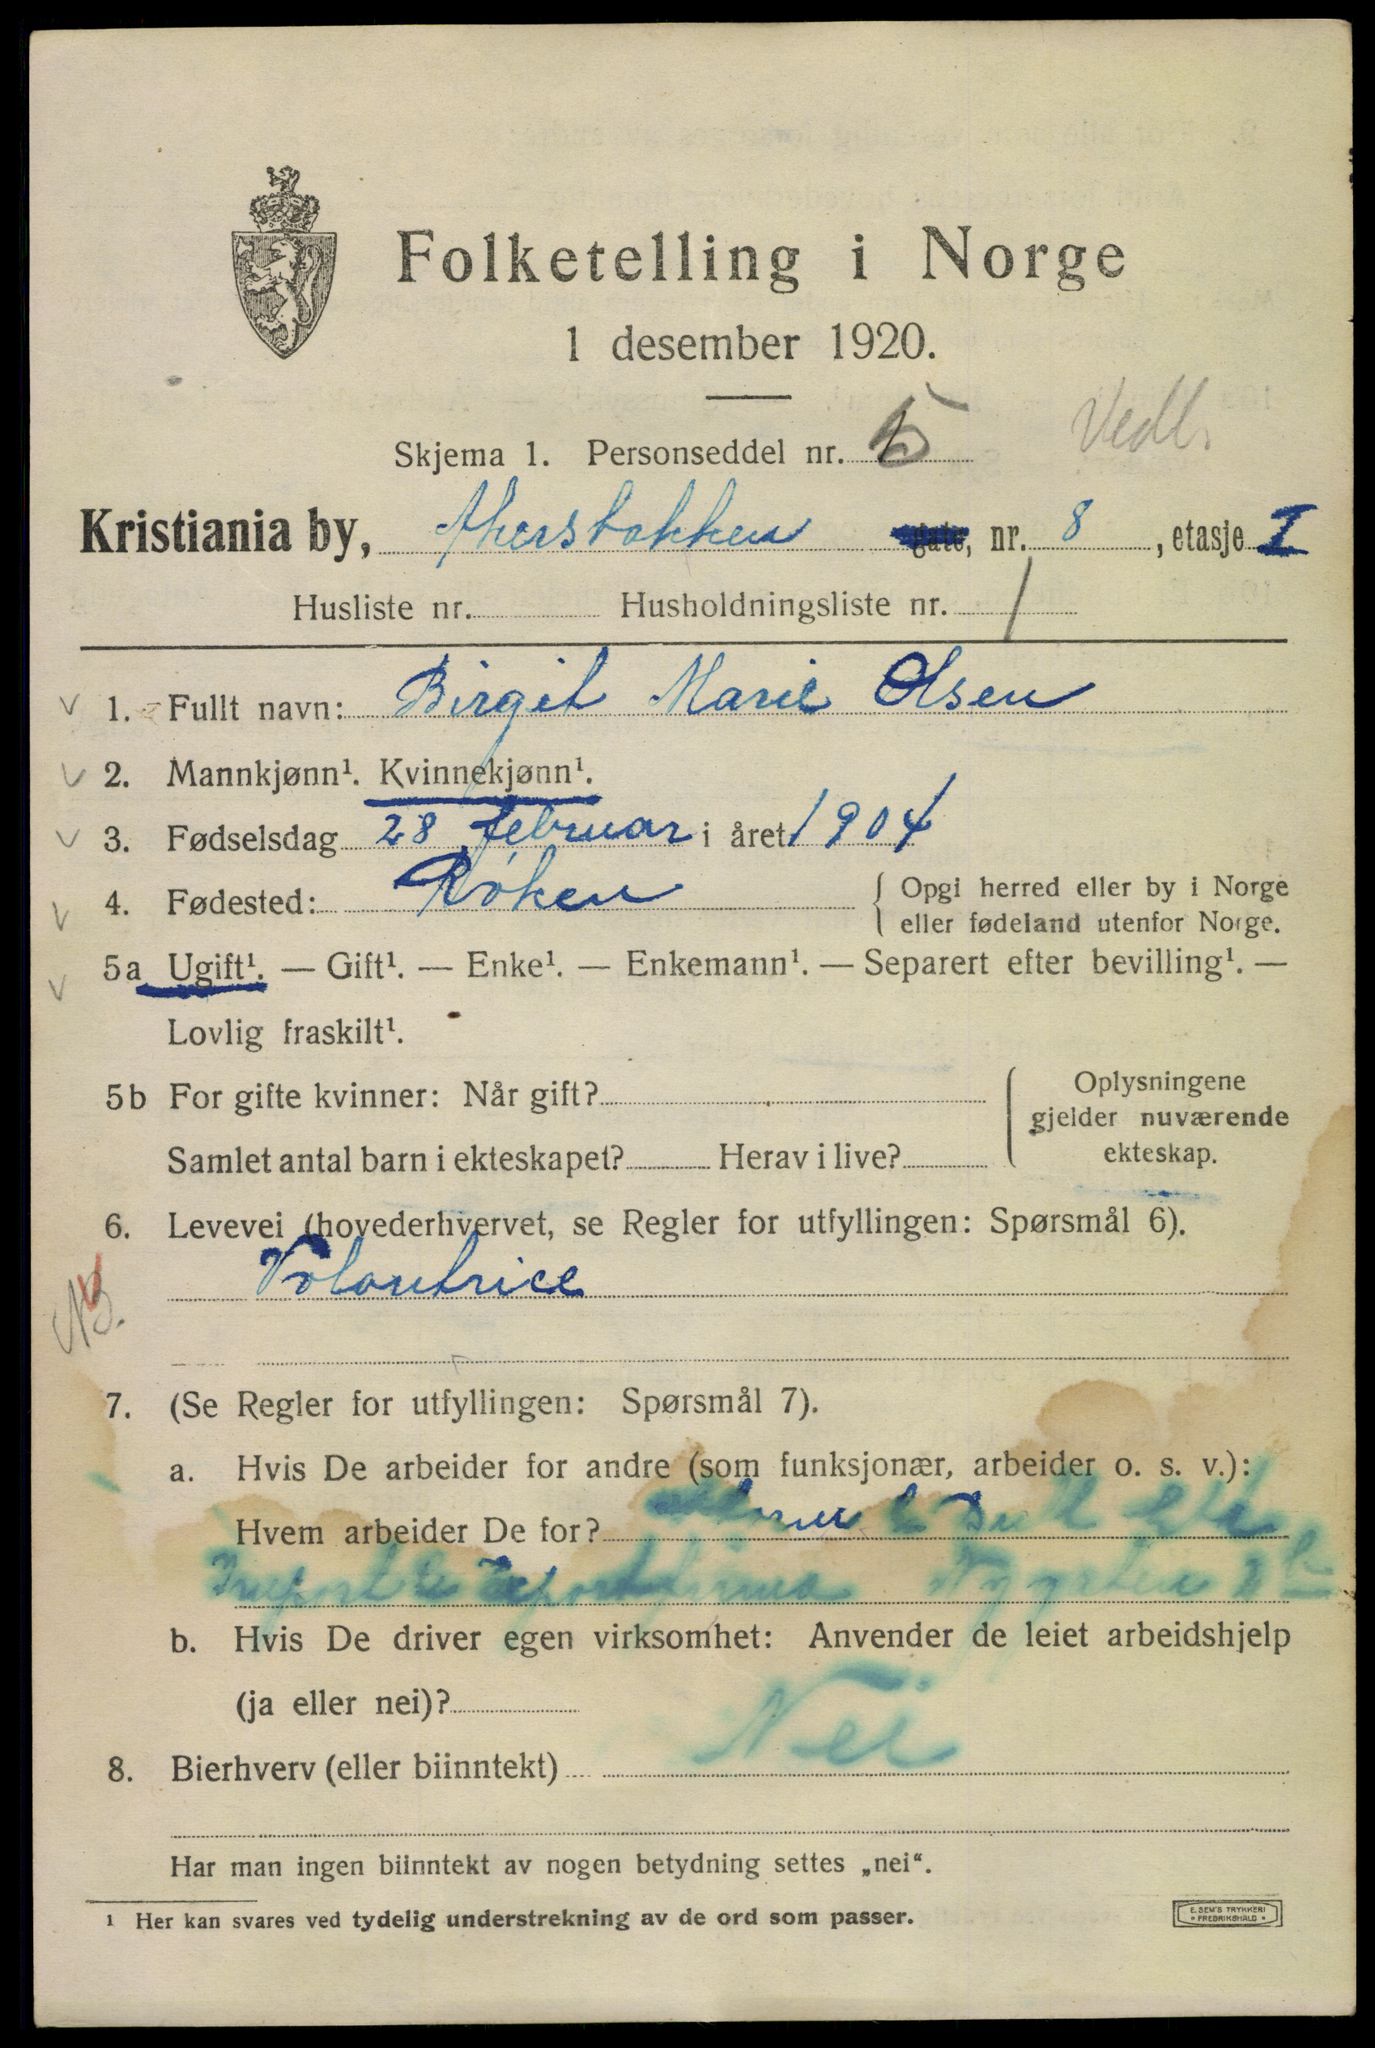 Folketelling i Norge
1 desember 1920.
Skjema 1. Personseddel nr. 5 Vedl.
Kristiania by, Akersbakken gate, nr. 8, etasje I
Husliste nr. Husholdningsliste nr. 1
1. Fullt navn: Birgit Marie Olsen
2. Mannkjønn¹. Kvinnekjønn¹.
3. Fødselsdag 28 februar i året 1904
4. Fødested: Røken { Opgi herred eller by i Norge
eller fødeland utenfor Norge.
5a Ugift¹. — Gift¹. — Enke¹. — Enkemann¹. — Separert efter bevilling¹. —
Lovlig fraskilt¹.
5b For gifte kvinner: Når gift?
Samlet antal barn i ekteskapet? Herav i live?
Oplysningene
gjelder nuværende
ekteskap.
6. Levevei (hovederhvervet, se Regler for utfyllingen: Spørsmål 6).
Volontrice
NB.
7. (Se Regler for utfyllingen: Spørsmål 7).
a. Hvis De arbeider for andre (som funksjonær, arbeider o. s. v.):
Hvem arbeider De for?
Import & Exportfirma
b. Hvis De driver egen virksomhet: Anvender de leiet arbeidshjelp
(ja eller nei)?
8. Bierhverv (eller biinntekt) Nei
Har man ingen biinntekt av nogen betydning settes „nei“.
¹ Her kan svares ved tydelig understrekning av de ord som passer.
E. SEM'S TRYKKERI
• FREDRIKSHALD •